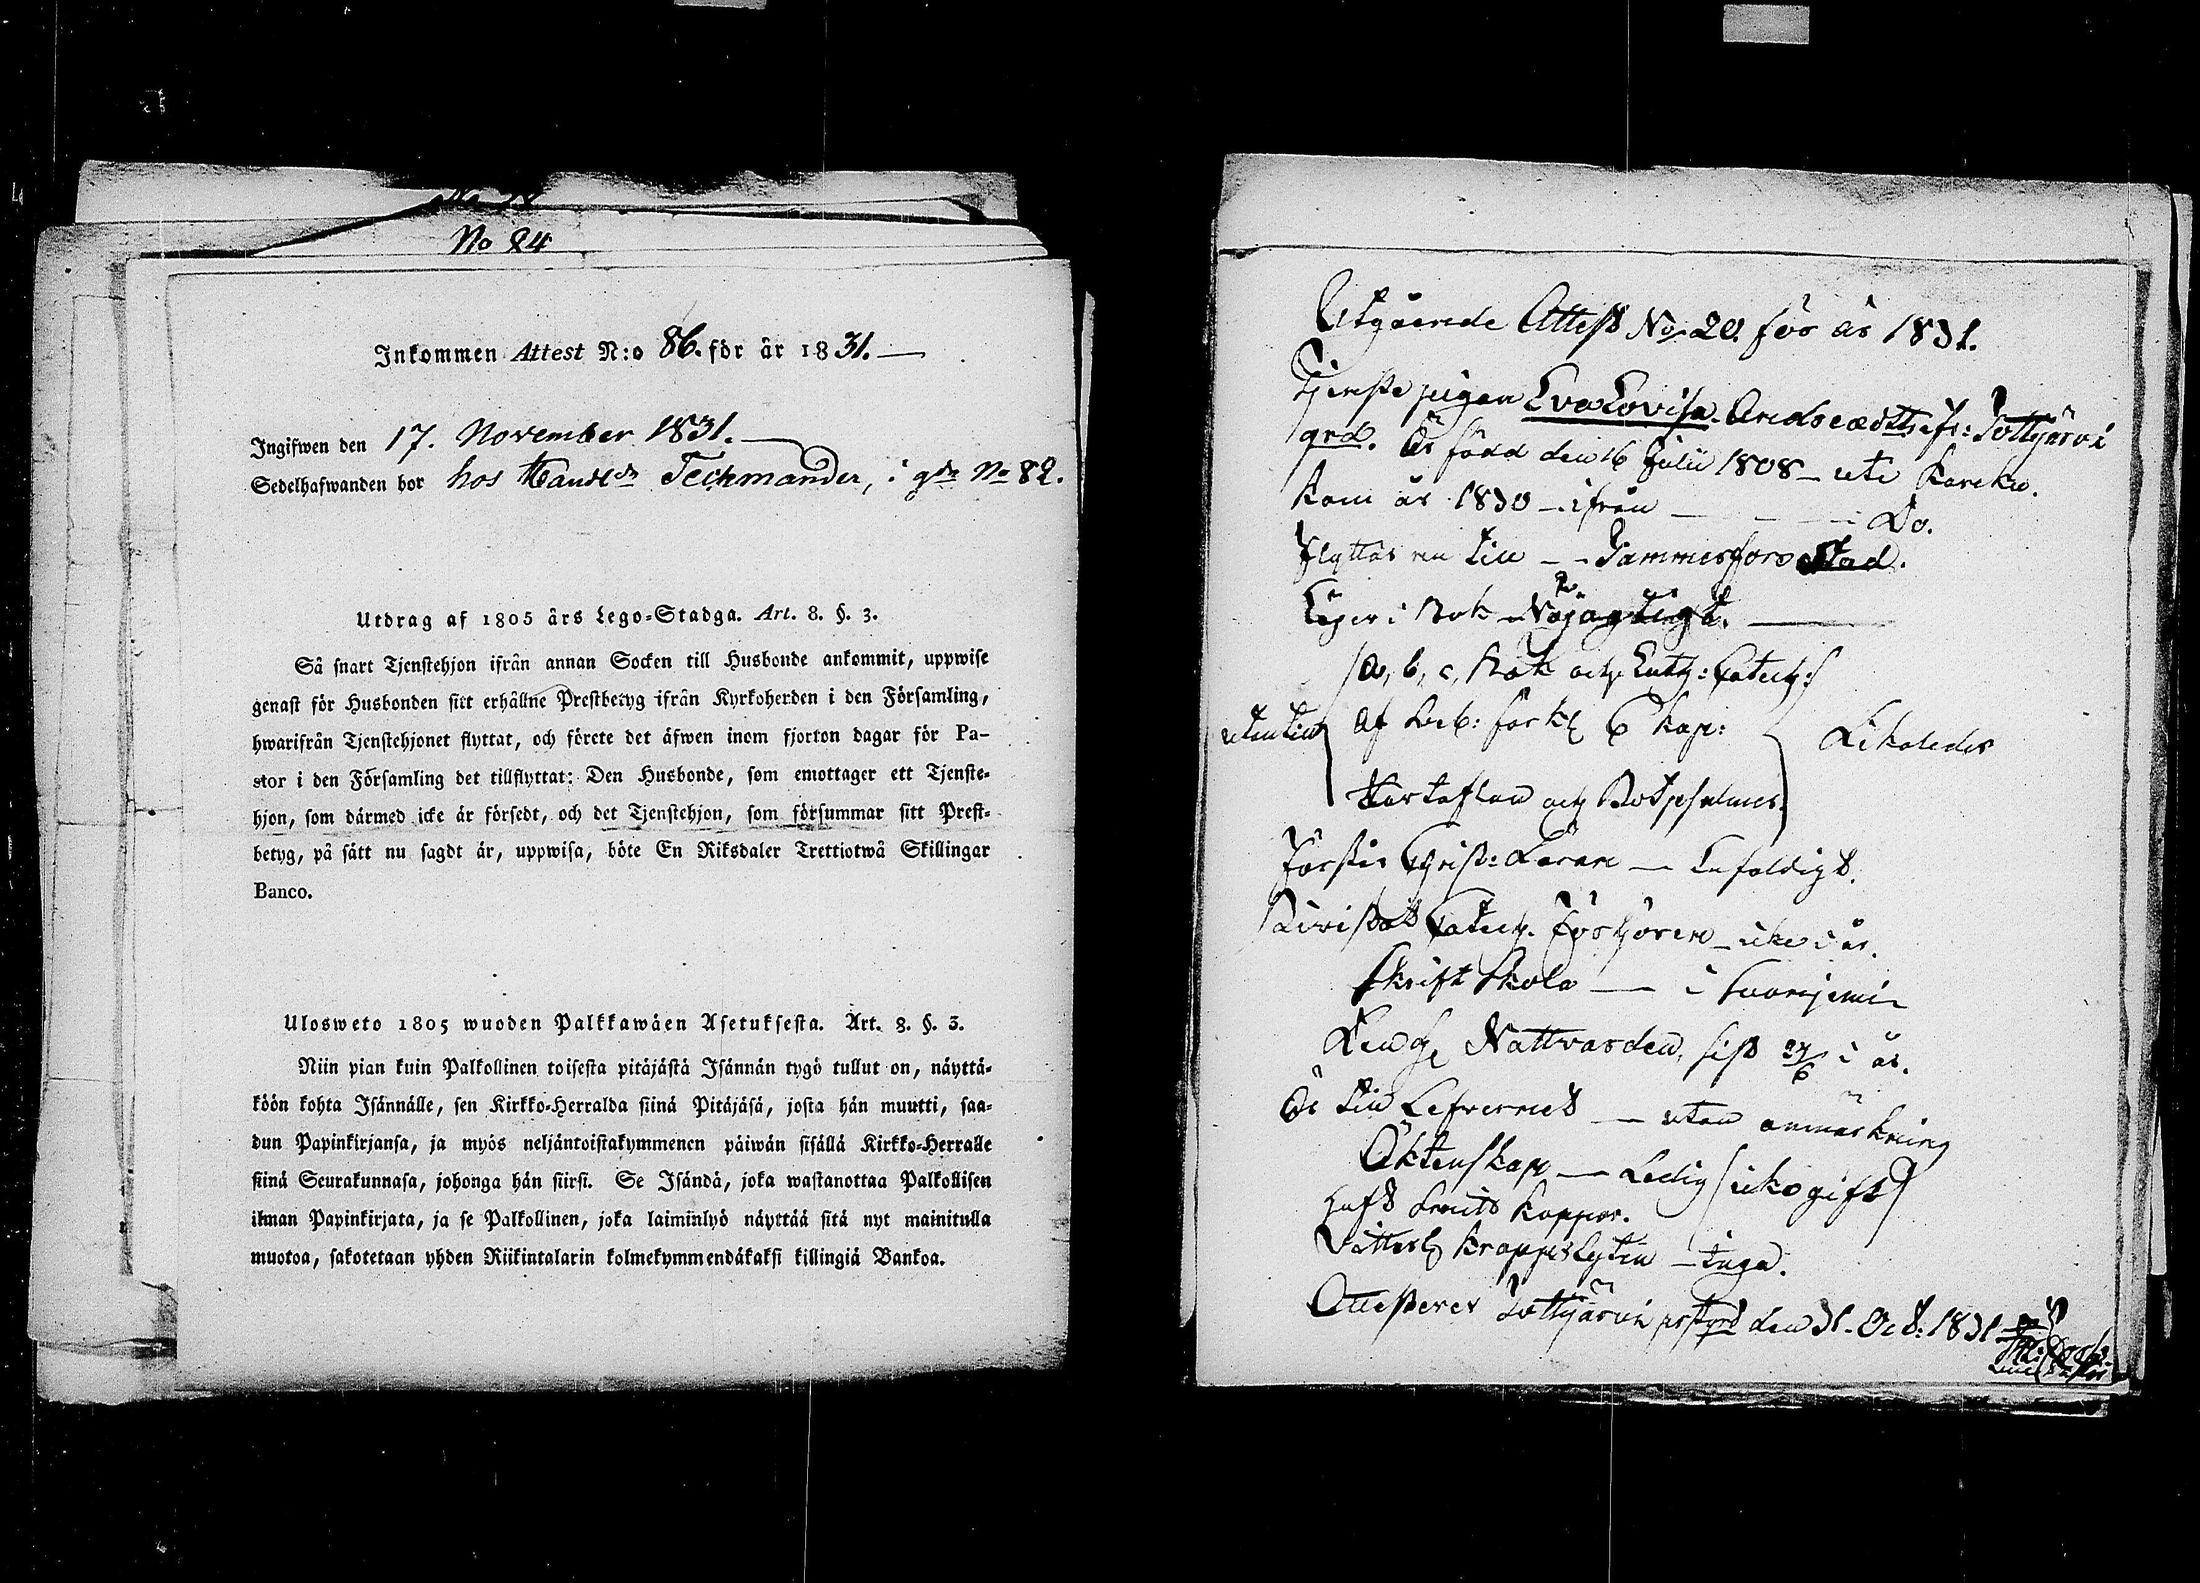 No 84
Inkommen Attest N:o 86. för år 1831. —
Ingifwen den 17. November 1831. —
Sedelhafwanden bor hos Handl:dn Teckmander, i g:dn No 82.
Utdrag af 1805 års Lego-Stadga. Art. 8. §. 3.
Så snart Tjenstehjon ifrån annan Socken till Husbonde ankommit, uppwise
genast för Husbonden sitt erhållne Prestbetyg ifrån Kyrkoherden i den Församling,
hwarifrån Tjenstehjonet flyttat, och förete det äfwen inom fjorton dagar för Pa-
stor i den Församling det tillflyttat: Den Husbonde, som emottager ett Tjenste-
hjon, som därmed icke är försedt, och det Tjenstehjon, som försummar sitt Prest-
betyg, på sätt nu sagdt är, uppwisa, böte En Riksdaler Trettiotwå Skillingar
Banco.
Ulosweto 1805 wuoden Palkkawäen Asetuksesta. Art. 8. §. 3.
Niin pian kuin Palkollinen toisesta pitäjästä Isännän tygö tullut on, näyttä-
köön kohta Isännälle, sen Kirkko-Herralda siinä Pitäjäsä, josta hän muutti, saa-
dun Papinkirjansa, ja myös neljäntoistakymmenen päiwän sisällä Kirkko-Herralle
siinä Seurakunnasa, johonga hän siirsi. Se Isändä, joka wastanottaa Palkollisen
ilman Papinkirjata, ja se Palkollinen, joka laiminlyö näyttää sitä nyt mainitulla
muotoa, sakotetaan yhden Riikintalarin kolmekymmendäkaksi killingiä Bankoa.
Utgående Attest No 20. för år 1831.
Tjenste pigan Eva Lovisa Andersdotter ifr: Sottjärvi
grd. Är född den 16 Julii 1808 — uti Karcku.
Kom år 1830 — ifrån — — — Do.
Flyttar nu till — — Tammerfors Stad.
Läser i Bok — Nöjagtigt. —
a, b, c, Bok och Luth: Catech:
utantill af Sveb: förkl 6 kap: Likaledes
Hustaflan och Botpsalmer
Förstår Christ: Läran — Enfaldigt.
Bivistat Catech. Förhören — icke i år.
Skrift Skola — i
D:o H. Nattvarden, sist 24/6 i år.
Är till Lefvernet — utan anmärkning
Äktenskap — Ledig (icke gift)
Haft Koppor.
Vitterl: Kroppslyten — Inga.
Attesterer Sottjärvi den 31. Oct: 1831